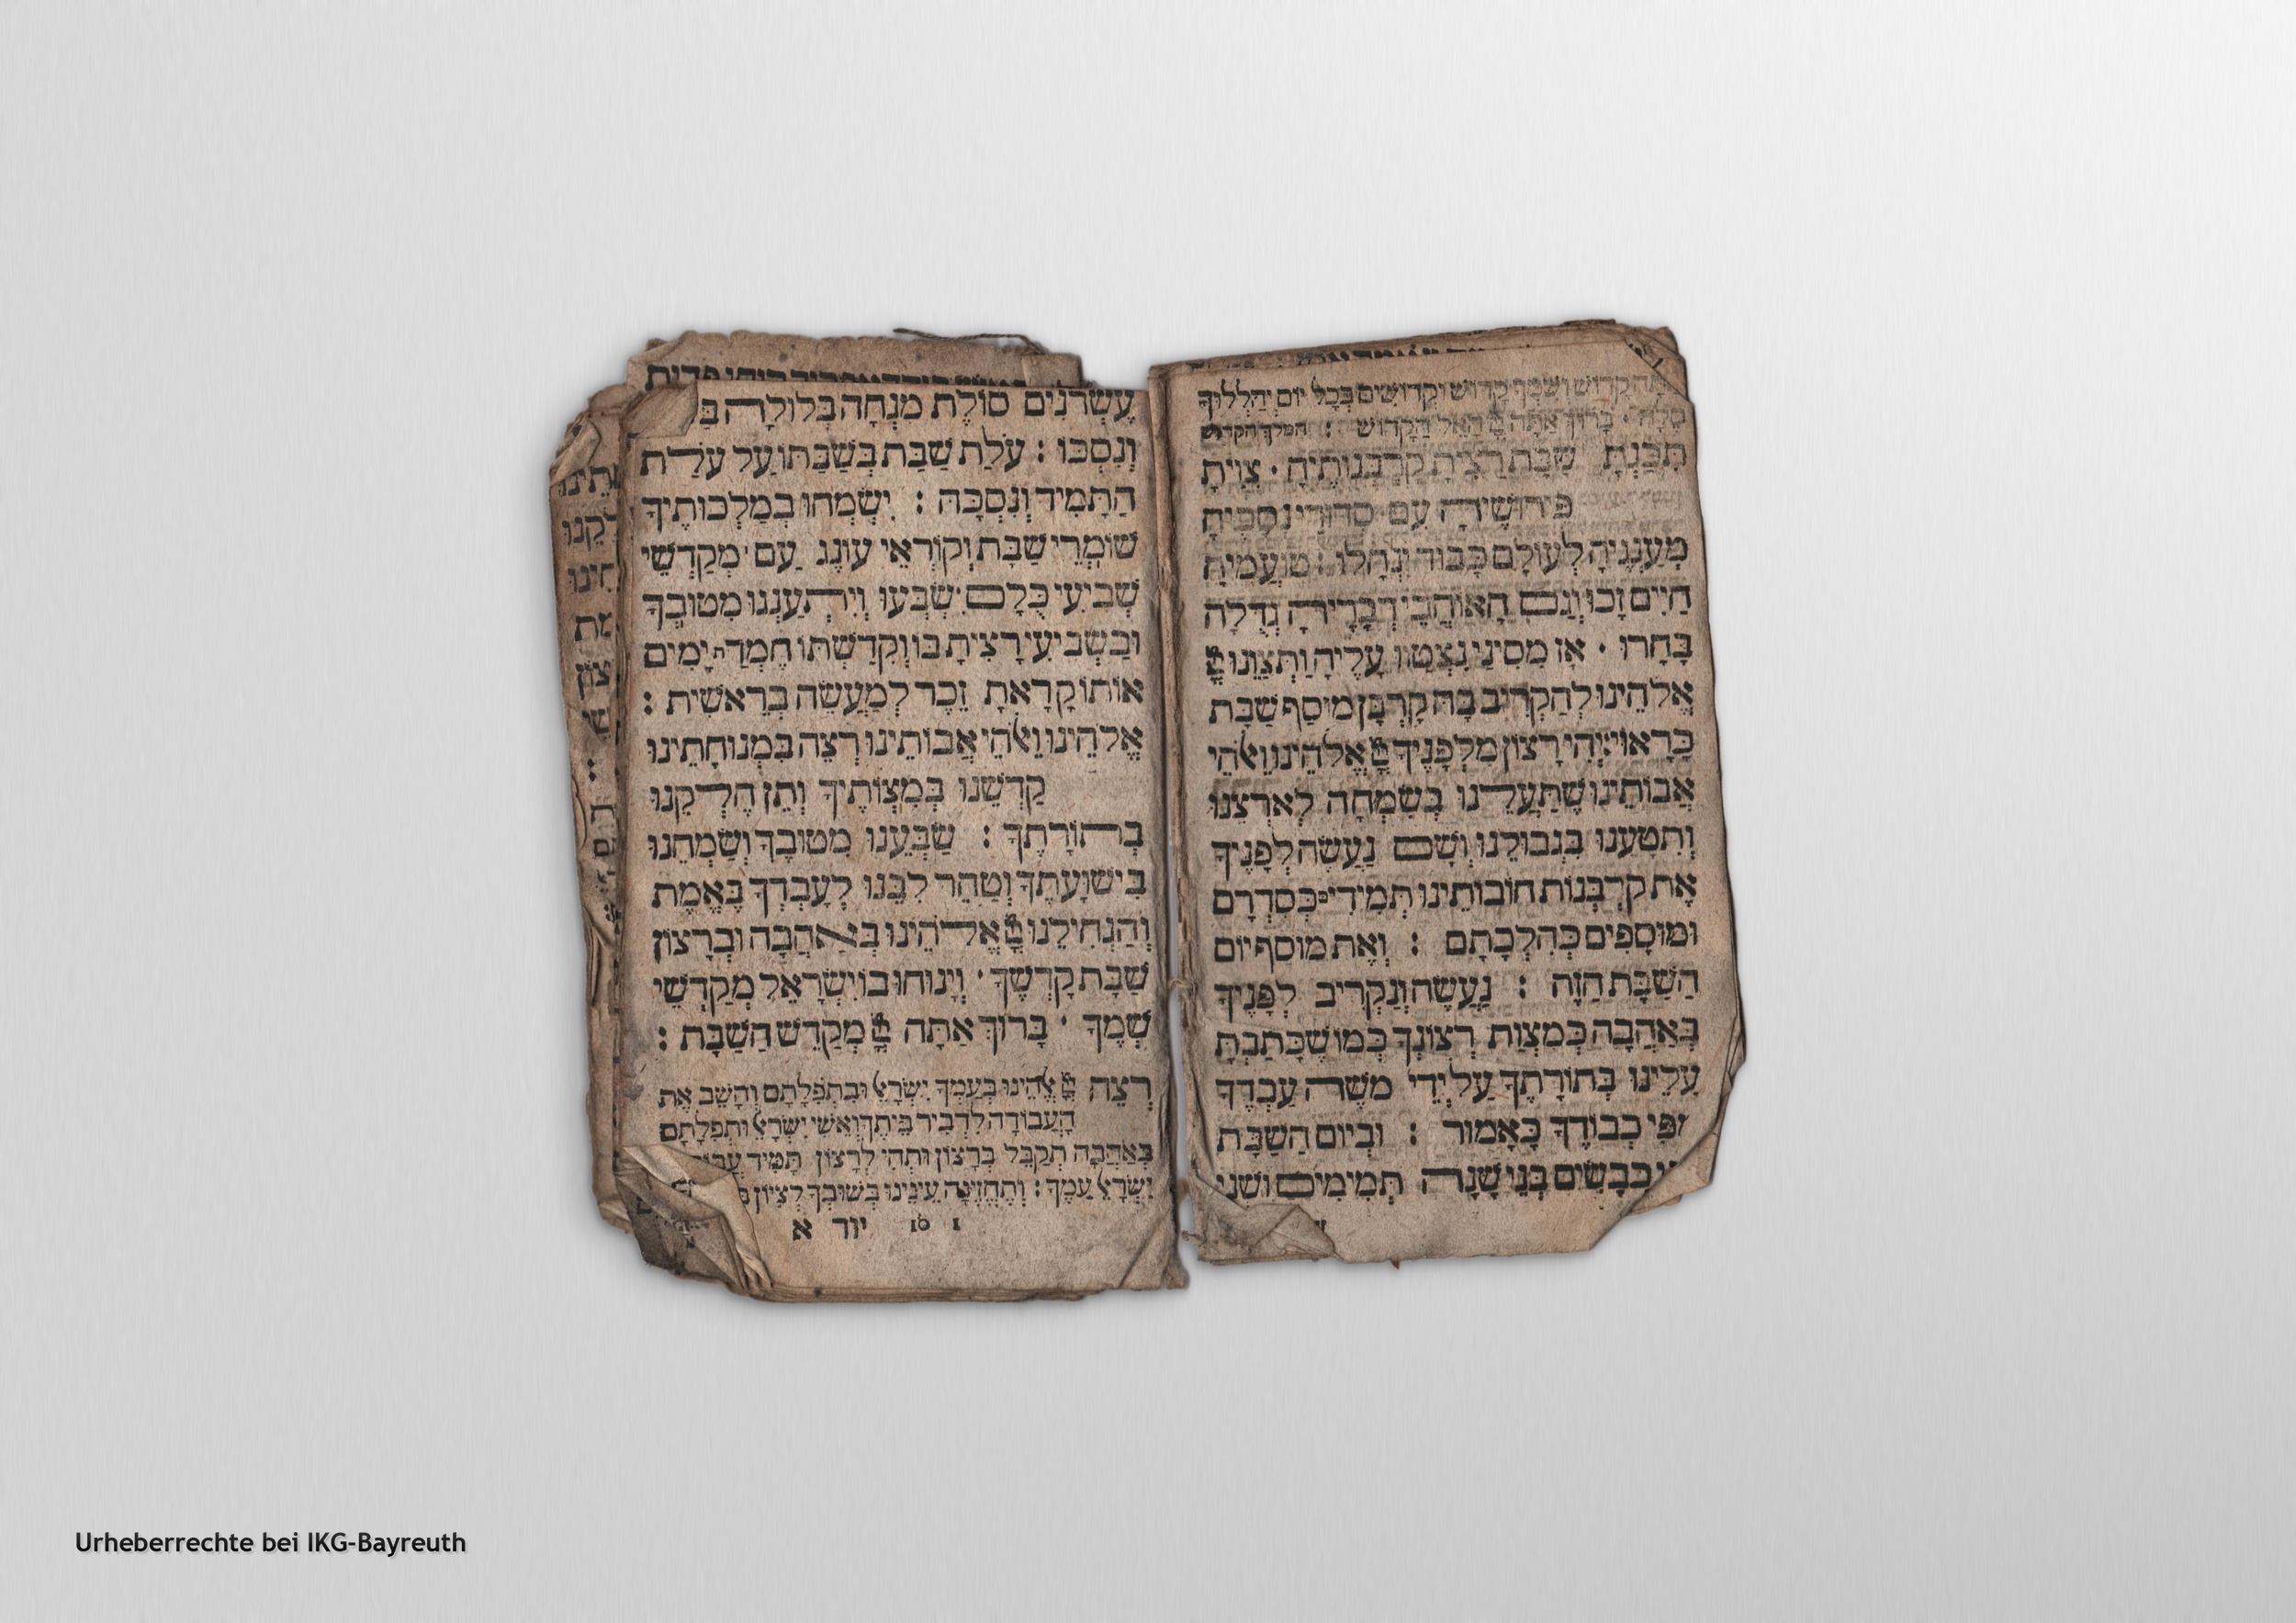 קָדוֹשׁ וְשִׁמְךָ קָדוֹשׁ וּקְדוֹשִׁים בְּכָל יוֹם יְהַלְלוּךָ
סֶלָה · בָּרוּךְ אַתָּה יְיָ הָאֵל הַקָּדוֹשׁ : המלך הקדוש
תִּכַּנְתָּ שַׁבָּת רָצִיתָ קָרְבְּנוֹתֶיהָ · צִוִּיתָ
פֵּירוּשֶׁיהָ עִם סִדּוּרֵי נְסָכֶיהָ
מְעַנְּגֶיהָ לְעוֹלָם כָּבוֹד יִנְחָלוּ : טוֹעֲמֶיהָ
חַיִּים זָכוּ וְגַם הָאוֹהֲבִי דְבָרֶיהָ גְּדֻלָּה
בָּחָרוּ · אָז מִסִּינַי נִצְטַוּוּ עָלֶיהָ וַתְּצַוֵּנוּ יְיָ
אֱלֹהֵינוּ לְהַקְרִיב בָּהּ קָרְבַּן מוּסַף שַׁבָּת
כָּרָאוּי יְהִי רָצוֹן מִלְּפָנֶיךָ יְיָ אֱלֹהֵינוּ וֵאלֹהֵי
אֲבוֹתֵינוּ שֶׁתַּעֲלֵינוּ בְשִׂמְחָה לְאַרְצֵנוּ
וְתִטָּעֵנוּ בִּגְבוּלֵנוּ וְשָׁם נַעֲשֶׂה לְפָנֶיךָ
אֶת קָרְבְּנוֹת חוֹבוֹתֵינוּ תְּמִידִים כְּסִדְרָם
וּמוּסָפִים כְּהִלְכָתָם : וְאֶת מוּסַף יוֹם
הַשַּׁבָּת הַזֶּה : נַעֲשֶׂה וְנַקְרִיב לְפָנֶיךָ
בְּאַהֲבָה כְּמִצְוַת רְצוֹנֶךָ כְּמוֹ שֶׁכָּתַבְתָּ
עָלֵינוּ בְּתוֹרָתֶךָ עַל יְדֵי מֹשֶׁה עַבְדֶּךָ
מִפִּי כְבוֹדֶךָ כָּאָמוּר : וּבְיוֹם הַשַּׁבָּת
כְּבָשִׂים בְּנֵי שָׁנָה תְּמִימִים וּשְׁנֵי
עֶשְׂרֹנִים סוֹלֶת מִנְחָה בְּלוּלָה
וְנִסְכּוֹ : עֹלַת שַׁבַּת בְּשַׁבַּתּוֹ עַל עֹלַת
הַתָּמִיד וְנִסְכָּהּ : יִשְׂמְחוּ בְמַלְכוּתֶיךָ
שׁוֹמְרֵי שַׁבָּת וְקוֹרְאֵי עוֹנֶג עַם מְקַדְּשֵׁי
שְׁבִיעִי כֻּלָּם יִשְׂבְּעוּ וְיִתְעַנְּגוּ מִטּוּבֶךָ
וּבַשְּׁבִיעִי רָצִיתָ בּוֹ וְקִדַּשְׁתּוֹ חֶמְדַּת יָמִים
אוֹתוֹ קָרָאתָ זֵכֶר לְמַעֲשֵׂה בְרֵאשִׁית :
אֱלֹהֵינוּ וֵאלֹהֵי אֲבוֹתֵינוּ רְצֵה בִמְנוּחָתֵינוּ
קַדְּשֵׁנוּ בְּמִצְוֹתֶיךָ וְתֵן חֶלְקֵנוּ
בְּתוֹרָתֶךָ : שַׂבְּעֵנוּ מִטּוּבָךְ וְשַׂמְּחֵנוּ
בִּישׁוּעָתֶךָ וְטַהֵר לִבֵּנוּ לְעָבְדְּךָ בֶּאֱמֶת
וְהַנְחִילֵנוּ יְיָ אֱלֹהֵינוּ בְּאַהֲבָה וּבְרָצוֹן
שַׁבַּת קָדְשֶׁךָ · וְיָנוּחוּ בוֹ יִשְׂרָאֵל מְקַדְּשֵׁי
שְׁמֶךָ · בָּרוּךְ אַתָּה יְיָ מְקַדֵּשׁ הַשַּׁבָּת :
רְצֵה יְיָ אֱלֹהֵינוּ בְּעַמְּךָ יִשְׂרָאֵל וּבִתְפִלָּתָם וְהָשֵׁב אֶת
הָעֲבוֹדָה לִדְבִיר בֵּיתֶךָ וְאִשֵּׁי יִשְׂרָאֵל וּתְפִלָּתָם
בְּאַהֲבָה תְקַבֵּל בְּרָצוֹן וּתְהִי לְרָצוֹן תָּמִיד
יִשְׂרָאֵל עַמֶּךָ : וְתֶחֱזֶינָה עֵינֵינוּ בְּשׁוּבְךָ לְצִיּוֹן
יוד א 10 1
Urheberrechte bei IKG-Bayreuth